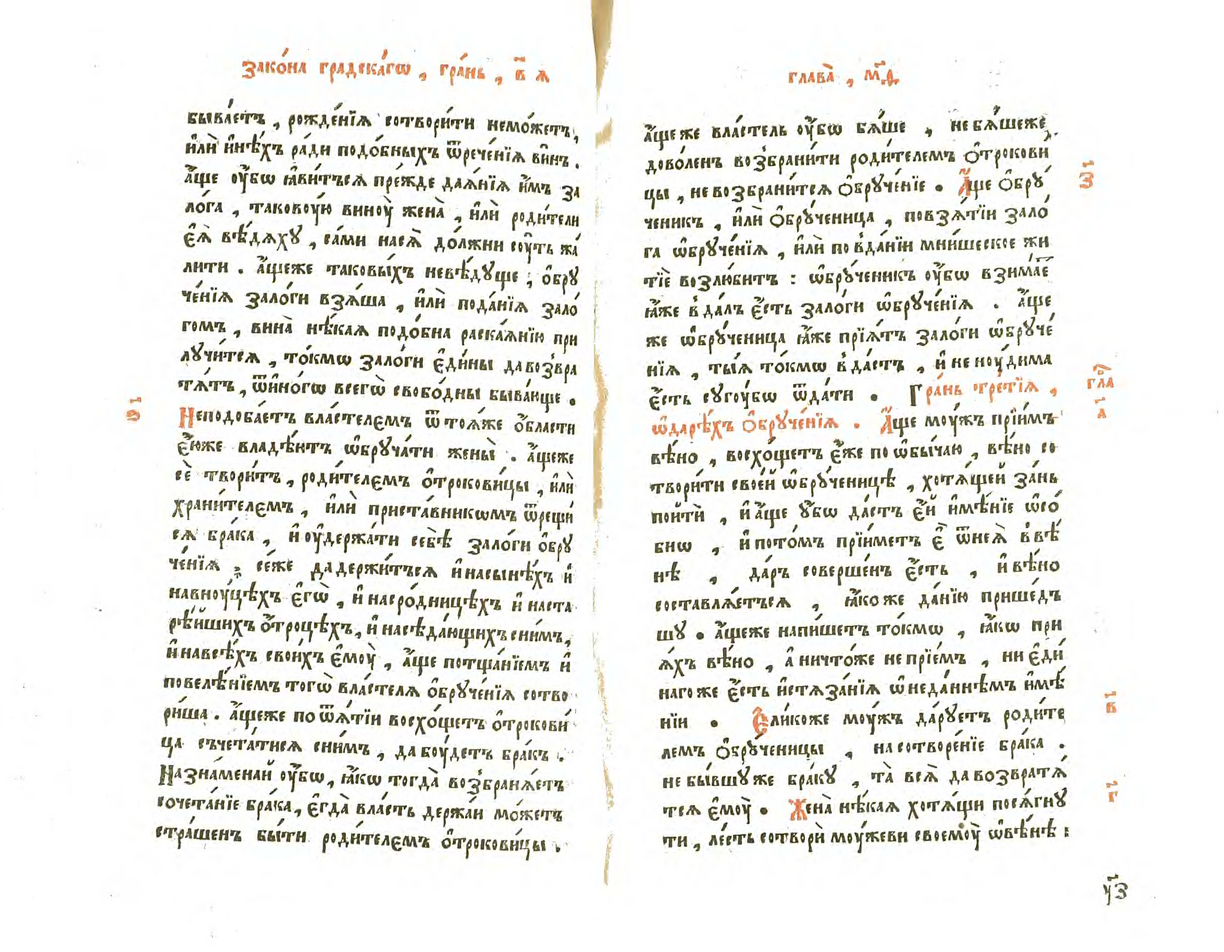 Зако́на градска́гѡ , гра́нь , в҃ ѧ
быва́етъ , рожде́нїѧ сотвори́ти немо́жетъ,
и҆лѝ и҆нѣ́хъ ра́ди подо́бныхъ ѿрече́нїѧ ви́нъ .
а҆́ще ᲂу҆́бѡ ꙗ҆ви́тьсѧ пре́жде даѧ́нїѧ и҆́мъ за
ло́га , таково́ую винꙋ̀ жена̀ , и҆лѝ роди́тели
є҆ѧ̀ вѣ́дѧхꙋ , са́ми насѧ̀ до́лжни сꙋ́ть жа́
лити . а҆́щеже таковы́хъ невѣ́дꙋще , ѻ҆брꙋ
че́нїѧ зало́ги взѧ́ша , и҆лѝ пода́нїѧ зало́
гомъ , вина̀ нѣ́каѧ подо́бна раска́ѧнїю при
лꙋчи́тсѧ , то́кмѡ зало́ги є҆ди́ны давозвра
тѧ́тъ , ѿи҆но́гѡ всегѡ̀ свобо́дны быва́юще .
Неподоба́етъ власте́лемъ ѿ тоѧ́же о҆́бласти
є҆ю́же владѣ́итъ ѡ҆брꙋча́ти жены̀ . а҆́щеже
сѐ твори́тъ , роди́телемъ ѻ҆трокови́цы , и҆лѝ
храни́телемъ , и҆лѝ приста́вникѡмъ ѿрещи́
сѧ бра́ка , и҆ᲂу҆держа́ти себѣ̀ зало́ги ѻ҆брꙋ
че́нїѧ ; се́же дадержи́тьсѧ и҆насынѣ́хъ и҆
навнꙋ́цѣхъ є҆гѡ̀ , и҆насро́дницѣхъ и҆ наста
рѣ́йшихъ ѻ҆́троцѣхъ , и҆насѣда́ющихъ сни́мъ,
и҆навсѣ́хъ свои́хъ є҆мꙋ̀ , а҆́ще потща́нїемъ и҆
повелѣ́нїемъ тогѡ̀ власте́лѧ ѻ҆брꙋче́нїѧ сотво
ри́ша . а҆́щеже по ѿѧ́тїи восхо́щетъ ѻ҆трокови́
ца съчета́тисѧ сни́мъ , да бꙋ́детъ бра́къ .
Назна́менай ᲂу҆́бѡ , ꙗ҆́кѡ тогда̀ возбранѧ́етъ
сочета́нїе бра́ка , є҆гда̀ вла́сть держа́и мо́жетъ
стра́шенъ бы́ти роди́телемъ ѻ҆трокови́цы .
ѳ҃і
глава̀ , м҃д
а҆́ще же власте́ль ᲂу҆́бѡ бѧ́ше , не бѧ́шеже
дово́ленъ возбрани́ти роди́телемъ ѻ҆трокови
цы , не возбрани́тсѧ ѻ҆брꙋче́нїе . А҆́ще ѻ҆брꙋ́
ченикъ , и҆лѝ ѻ҆брꙋ́ченица , повзѧ́тїи зало́
га ѡ҆брꙋче́нїѧ , и҆лѝ по вда́нїи мни́шеское жи
тїѐ возлю́битъ : ѡ҆брꙋ́ченикъ ᲂу҆́бѡ взима́е
ꙗ҆́же вда́лъ є҆́сть зало́ги ѡ҆брꙋче́нїѧ . а҆́ще
же ѡ҆брꙋ́ченица ꙗ҆́же прїѧ́тъ зало́ги ѡ҆брꙋче́
нїѧ , ты́ѧ то́кмѡ вда́стъ , и҆ не нꙋ́дима
є҆́сть сꙋгꙋ́бѡ ѿда́ти . Гра́нь тре́тїѧ ,
ѡ҆да́рѣхъ ѻ҆брꙋче́нїѧ . А҆́ще мꙋ́жъ прїи́мъ
вѣ́но , восхо́щетъ є҆́же по ѡ҆бы́чаю , вѣ́но со
твори́ти свое́й ѡ҆брꙋ́ченицѣ , хотѧ́щей за́нь
пойтѝ , и҆ а҆́ще ᲂу҆́бѡ да́стъ є҆́й и҆мѣ́нїе ѡ҆со́
бнѡ , и҆ пото́мъ прїи́метъ є҆̀ ѿнеѧ̀ ввѣ́
нѣ , да́ръ соверше́нъ є҆́сть , и҆ вѣ́но
составлѧ́етьсѧ , ꙗ҆́ко же да́нїю прише́дъ
шꙋ . а҆́щеже напи́шетъ то́кмѡ , ꙗ҆́кѡ при
ѧ́хъ вѣ́но , а҆ ничто́же не прїе́мъ , ни є҆ди́
наго же є҆́сть и҆стѧза́нїѧ ѡ҆ неда́ннѣмъ и҆мѣ́
нїи . Є҆ли́коже мꙋ́жъ да́рꙋетъ роди́те
лемъ ѻ҆брꙋ́ченицы , на сотворе́нїе бра́ка .
не бы́вшꙋ же бра́кꙋ , та̀ всѧ̀ да возвратѧ́
тсѧ є҆мꙋ̀ . Жена̀ нѣ́каѧ хотѧ́щи посѧ́гнꙋ
ти , ле́сть сотворѝ мꙋ́жеви своемꙋ̀ ѡ҆вѣ́нѣ :
з҃і
гла
а҃
в҃
г҃
у҃з